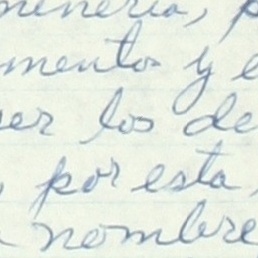 minería, p
mentos y e
er los de
, por esta
nombre